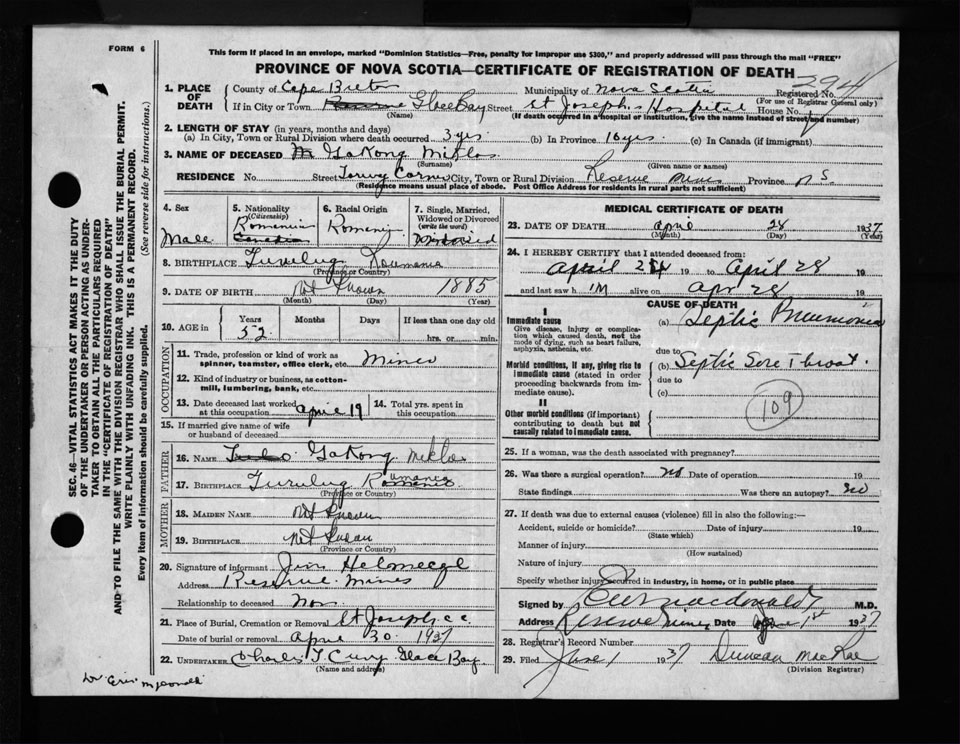 FORM 6
This form if placed in an envelope, marked "Dominion Statistics—Free, penalty for improper use $300," and properly addressed will pass through the mail "FREE"
PROVINCE OF NOVA SCOTIA—CERTIFICATE OF REGISTRATION OF DEATH
294
1. PLACE OF DEATH
County of Cape Breton Municipality of Nova Scotia Registered No.
(For use of Registrar General only)
If in City or Town Reserve Glace Bay Street St Joseph's Hospital House No.
(Name) (If death occurred in a hospital or institution, give the name instead of street and number)
2. LENGTH OF STAY (in years, months and days)
(a) In City, Town or Rural Division where death occurred 3 yrs. (b) In Province 16 yrs. (c) In Canada (if immigrant)
3. NAME OF DECEASED Gakong Miklos
(Surname) (Given name or names)
RESIDENCE No. Street City, Town or Rural Division Reserve Mines Province N S.
(Residence means usual place of abode. Post Office Address for residents in rural parts not sufficient)
SEC. 46—VITAL STATISTICS ACT MAKES IT THE DUTY
OF THE UNDERTAKER OR PERSON ACTING AS UNDER-
TAKER TO OBTAIN ALL THE PARTICULARS REQUIRED
IN THE "CERTIFICATE OF REGISTRATION OF DEATH"
AND TO FILE THE SAME WITH THE DIVISION REGISTRAR WHO SHALL ISSUE THE BURIAL PERMIT.
WRITE PLAINLY WITH UNFADING INK. THIS IS A PERMANENT RECORD.
Every item of information should be carefully supplied. (See reverse side for instructions.)
4. Sex
Male
5. Nationality
(Citizenship)
Romanian
6. Racial Origin
7. Single, Married,
Widowed or Divorced
(write the word)
8. BIRTHPLACE Roumania
(Province or Country)
9. DATE OF BIRTH Not Known 1885
(Month) (Day) (Year)
10. AGE in Years Months Days If less than one day old
52 hrs. or min.
OCCUPATION
11. Trade, profession or kind of work as
spinner, teamster, office clerk, etc. Miner
12. Kind of industry or business, as cotton-
mill, lumbering, bank, etc.
13. Date deceased last worked
at this occupation April 19
14. Total yrs. spent in
this occupation
15. If married give name of wife
or husband of deceased
FATHER
16. NAME Gakong Miklos
17. BIRTHPLACE Romania
(Province or Country)
MOTHER
18. MAIDEN NAME Not Known
19. BIRTHPLACE Not Known
(Province or Country)
20. Signature of informant Jim
Address Reserve Mines
Relationship to deceased Non.
21. Place of Burial, Cremation or Removal St Josephs
Date of burial or removal April 30 1937
22. UNDERTAKER Charles T. Curry Glace Bay.
(Name and address)
MEDICAL CERTIFICATE OF DEATH
23. DATE OF DEATH April 28 1937
(Month) (Day) (Year)
24. I HEREBY CERTIFY that I attended deceased from:
April 19 to April 28 19
and last saw h im alive on Apr 28 19
CAUSE OF DEATH
I
Immediate cause
Give disease, injury or complica-
tion which caused death, not the
mode of dying, such as heart failure,
asphyxia, asthenia, etc.
(a) Septic Pneumonia
due to
Morbid conditions, if any, giving rise to
immediate cause (stated in order
proceeding backwards from im-
mediate cause).
(b) Septic Sore Throat.
due to
(c)
109
II
Other morbid conditions (if important)
contributing to death but not
causally related to immediate cause.
25. If a woman, was the death associated with pregnancy?
26. Was there a surgical operation? No Date of operation 19
State findings Was there an autopsy? No
27. If death was due to external causes (violence) fill in also the following:—
Accident, suicide or homicide? Date of injury 19
(State which)
Manner of injury
(How sustained)
Nature of injury
Specify whether injury occurred in industry, in home, or in public place
Signed by MacDonald M.D.
Address Reserve Mines Date 1st 1937
28. Registrar's Record Number
29. Filed June 1 1937 Duncan MacRae
(Division Registrar)
Dr Eric McDonald